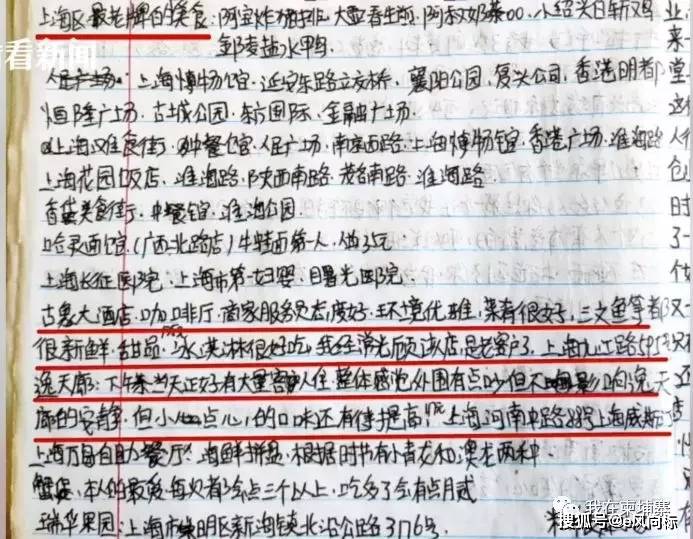 看看新闻
上海区最老牌的美食:阿宝炸猪排、大壶春生煎、阿叔奶茶、小绍兴白斩鸡
盐水鸭
人民广场、上海博物馆、延安东路立交桥、襄阳公园、复兴公园、香港明都
恒隆广场、古城公园、东方国际、金融广场
上海美食街、中餐馆、人民广场、南京西路、上海博物馆、香港广场、淮海路
上海花园饭店、淮海路、陕西南路、茂名南路、淮海路
美食街、中餐馆、淮海公园
哈灵面馆(广西北路店)牛蛙面第一人
上海长征医院、上海市第一妇婴、曙光医院
古象大酒店、咖啡厅、商家服务员态度好、环境优雅、菜肴很好、三文鱼等都
很新鲜、甜品、冰淇淋很好吃,我经常光顾该店,是老客户了,上海九江路595号
逸天廊:下午茶当天正好有大量客人住,整体感觉外围有点吵但不影响逸天
廊的安静,但小点心的口味还有待提高,上海河南中路
上海万豪自助餐厅:海鲜拼盘,根据时节有小青龙和澳龙两种
蟹
瑞华果园:上海市崇明区新海镇北沿公路3176号
我在柬埔寨
搜狐号@风向标